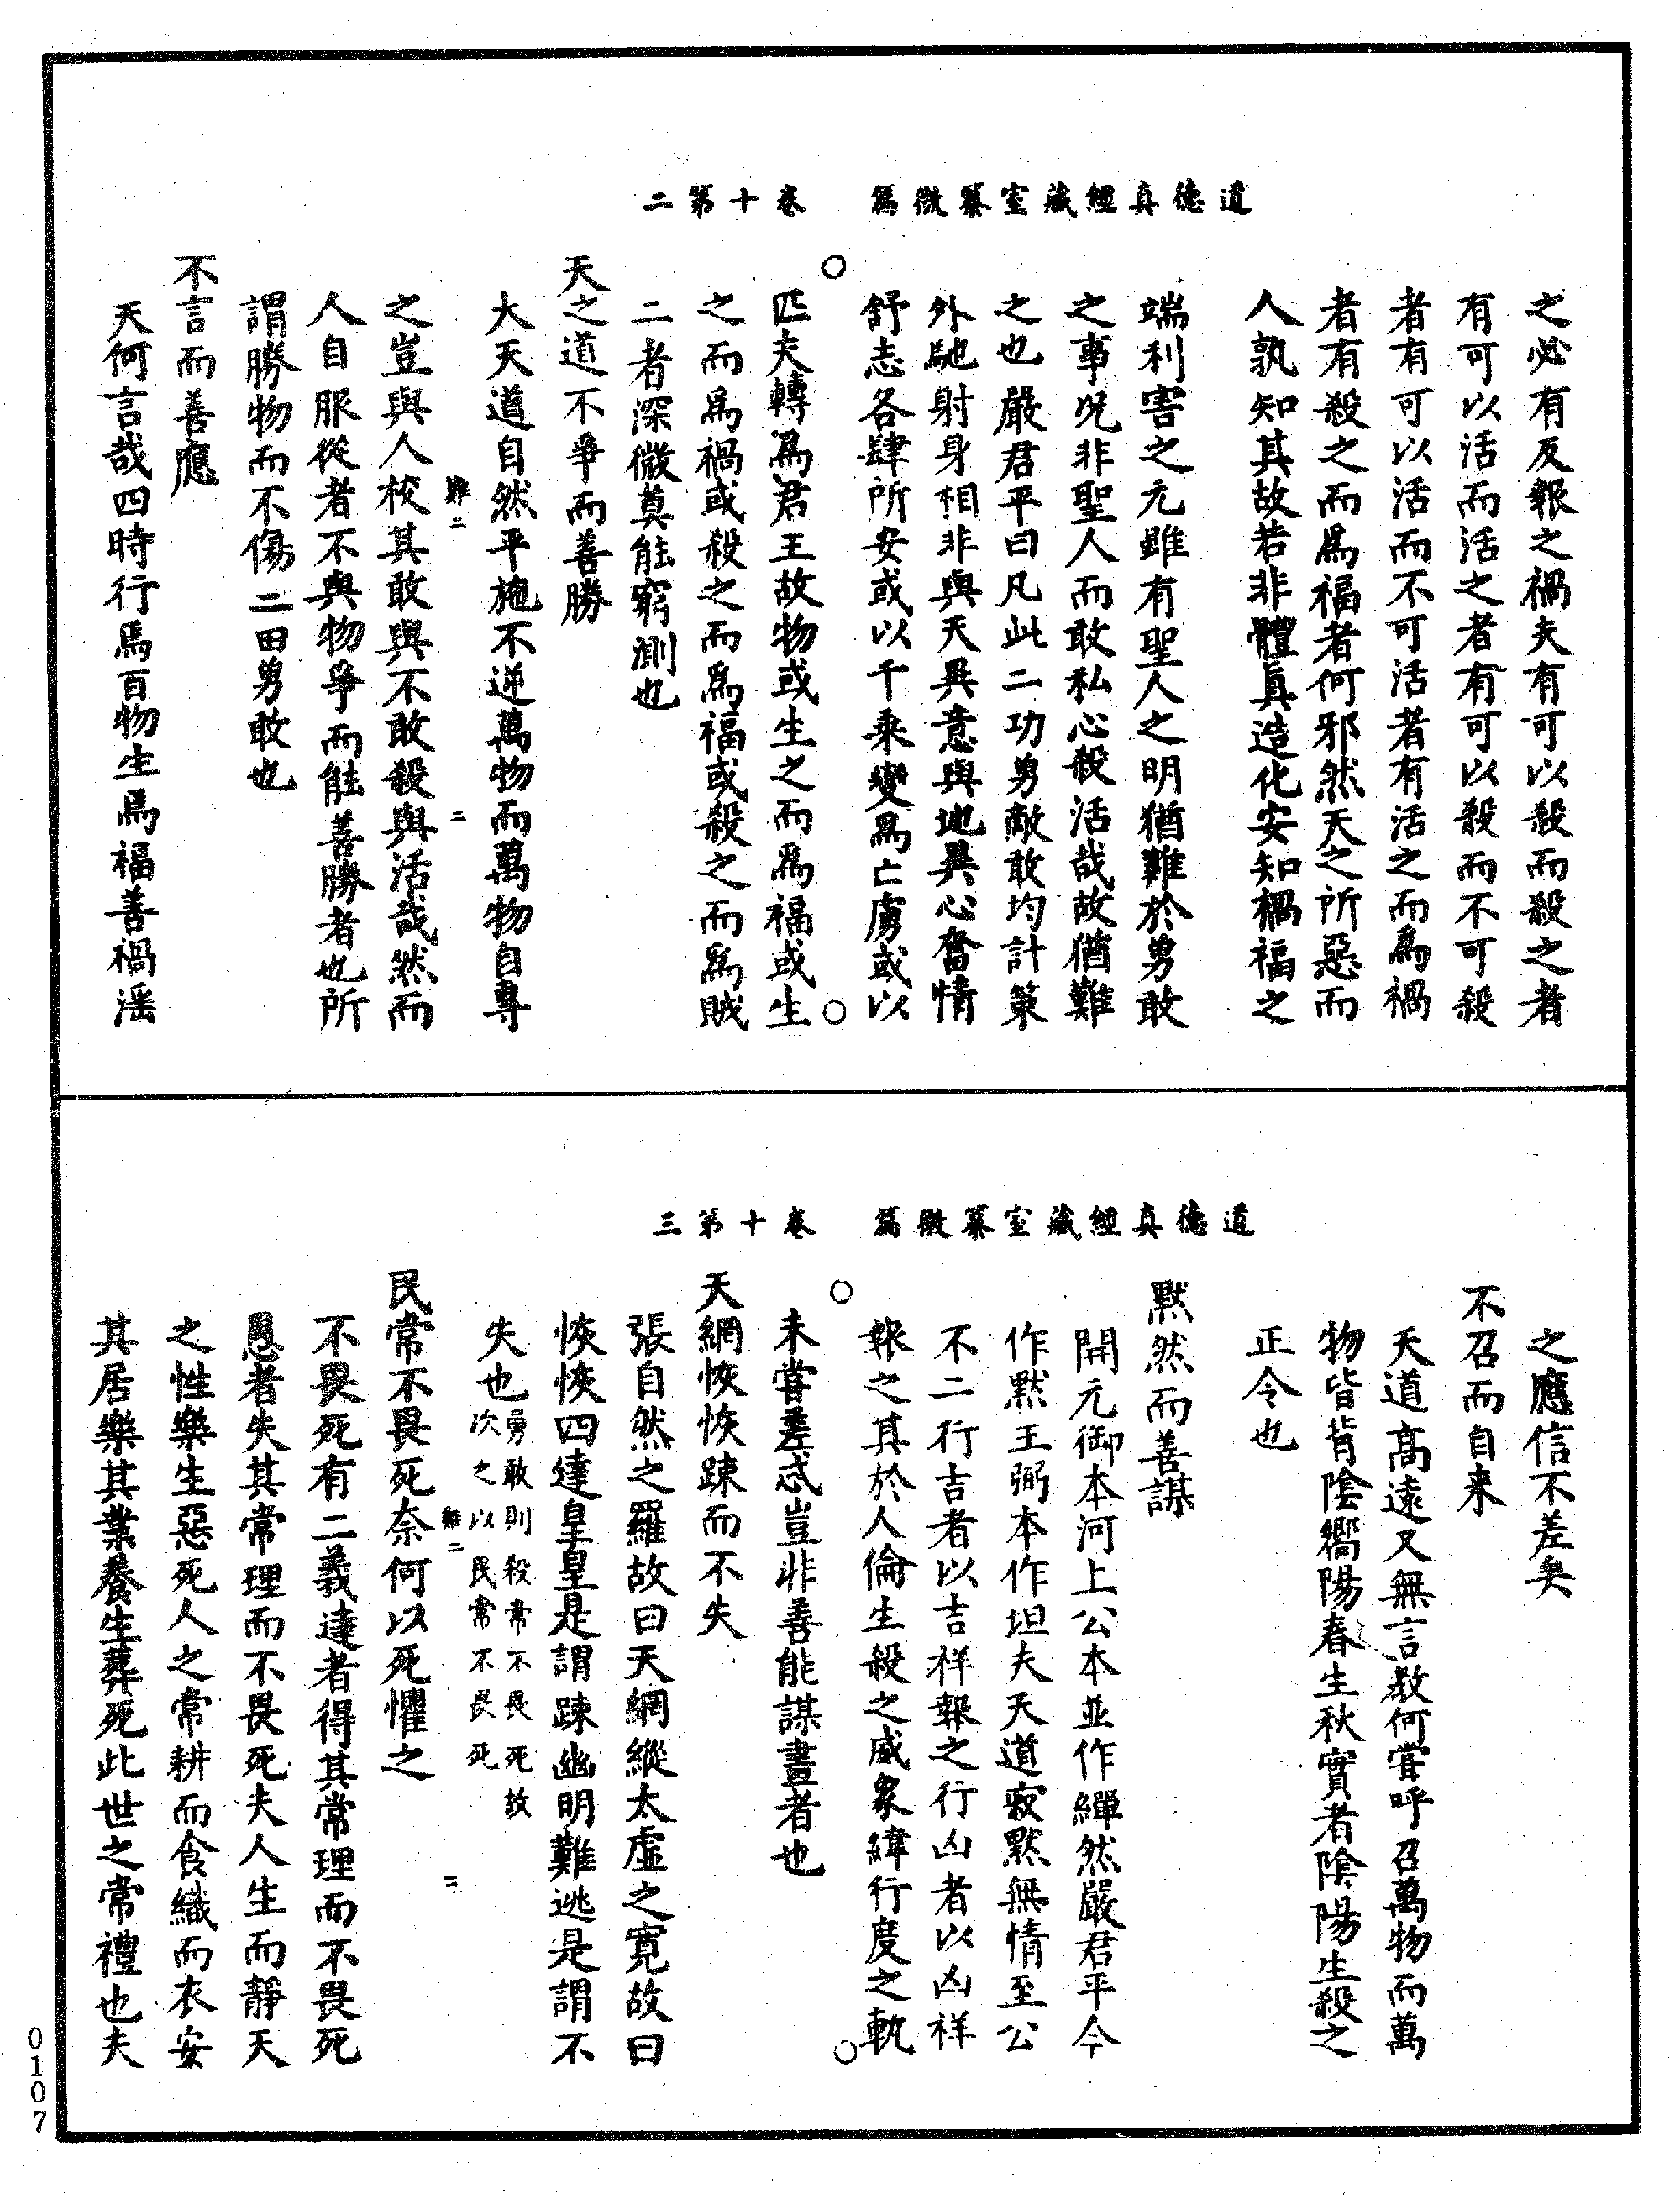 道德真經藏室纂微篇　卷十第二
之必有反報之禍夫有可以殺而殺之者
有可以活而活之者有可以殺而不可殺
者有可以活而不可活者有活之而爲禍
者有殺之而爲福者何邪然天之所惡而
人孰知其故若非體真造化安知禍福之
端利害之元雖有聖人之明猶難於勇敢
之事況非聖人而敢私心殺活哉故猶難
之也嚴君平曰凡此二功勇敵敢均計策
外馳射身相非與天異意與地異心奮情
舒志各肆所安或以千乘變爲亡虜或以
匹夫轉爲君王故物或生之而爲福或生
之而爲禍或殺之而爲福或殺之而爲賊
二者深微莫能窮測也
天之道不爭而善勝
大天道自然平施不逆萬物而萬物自尊
之豈與人校其敢與不敢殺與活哉然而
人自服從者不與物爭而能善勝者也所
謂勝物而不傷二田勇敢也
不言而善應
天何言哉四時行焉百物生焉福善禍淫
道德真經藏室纂微篇　卷十第三
之應信不差矣
不召而自來
天道高遠又無言教何嘗呼召萬物而萬
物皆背陰嚮陽春生秋實者陰陽生殺之
正令也
默然而善謀
開元御本河上公本並作繟然嚴君平今
作默王弼本作坦夫天道寂默無情至公
不二行吉者以吉祥報之行凶者以凶祥
報之其於人倫生殺之威象緯行度之軌
未嘗差忒豈非善能謀畫者也
天網恢恢踈而不失
張自然之羅故曰天網縱太虛之寬故曰
恢恢四達皇皇是謂踈幽明難逃是謂不
失也勇敢則殺常不畏死故
次之以民常不畏死
民常不畏死奈何以死懼之
不畏死有二義達者得其常理而不畏死
愚者失其常理而不畏死夫人生而靜天
之性樂生惡死人之常耕而食織而衣安
其居樂其業養生葬死此世之常禮也夫
0107